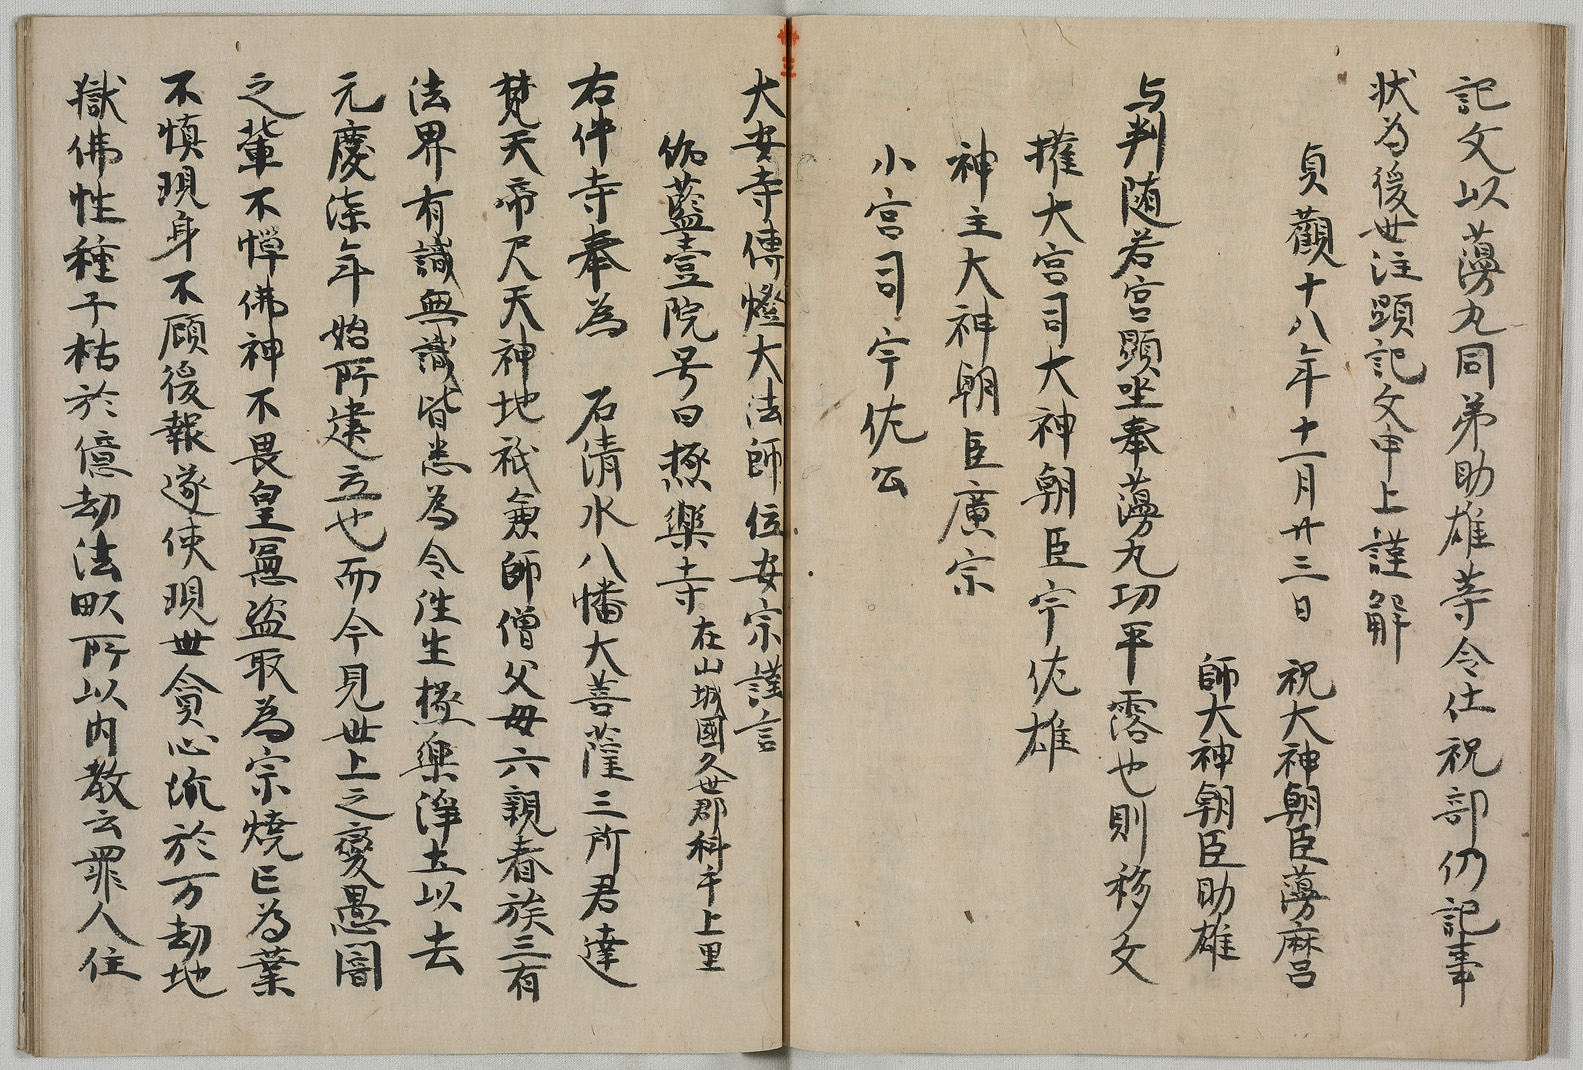 記文以蕩丸同弟助雄等令仕祝部仍記事
状為後世注顕記文申上謹解
貞觀十八年十一月廿三日 祝大神朝臣蕩麻呂
師大神朝臣助雄
与判随若宮顕坐奉蕩丸功平霑也則移文
擬大宮司大神朝臣宇佐雄
神主大神朝臣廣宗
小宮司宇佐公
大安寺傳燈大法師位安宗謹言
伽藍壹院号曰極樂寺 在山城國久世郡科手上里
右件寺奉為 石清水八幡大菩薩三所君達
梵天帝尺天神地祇兼師僧父母六親眷族三有
法界有識無識皆悉為令往生極樂淨土以去
元慶漆年始所建立也而今見世上之變愚闇
之輩不憚佛神不畏皇憲盗取為宗燒亡為業
不慎現身不顧後報遂使現世貪心流於万劫地
獄佛性種子枯於億劫法畎所以内教云罪人住